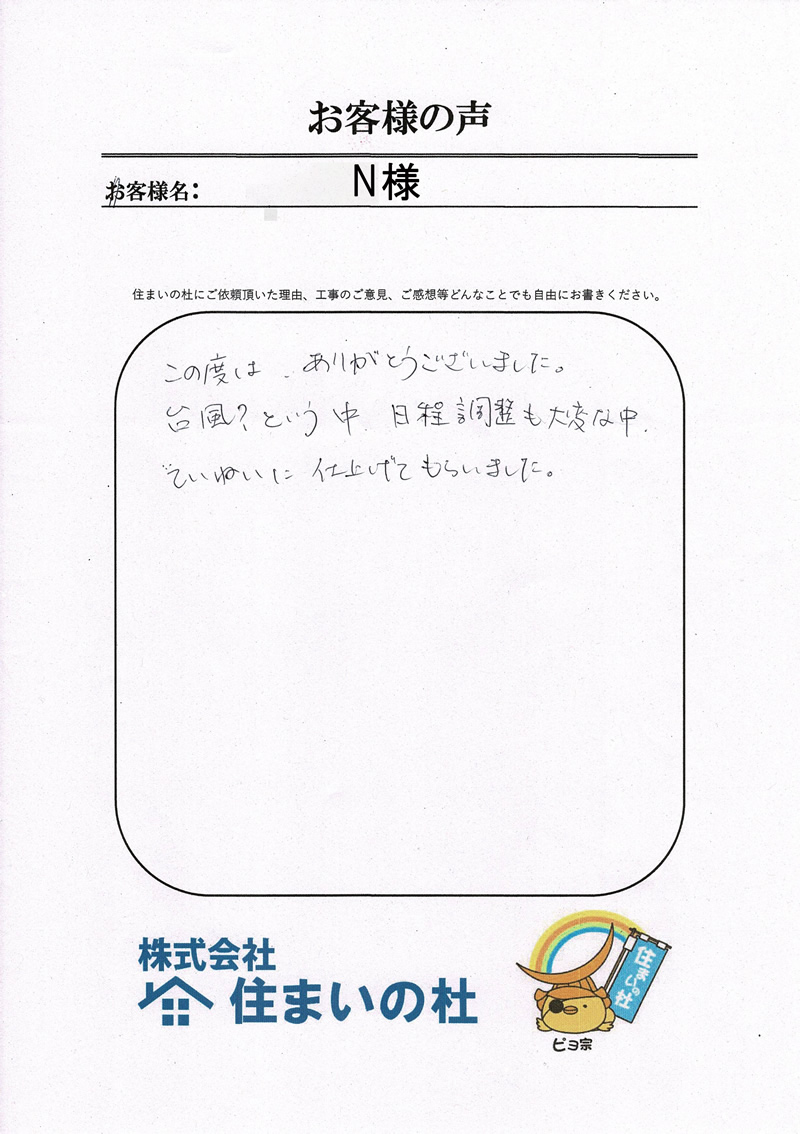 お客様の声
お客様名： N様
住まいの杜にご依頼頂いた理由、工事のご意見、ご感想等どんなことでも自由にお書きください。
この度は、ありがとうございました。
台風？という中、日程調整も大変な中、
ていねいに仕上げてもらいました。
株式会社
住まいの杜
住まいの杜
ピヨ宗